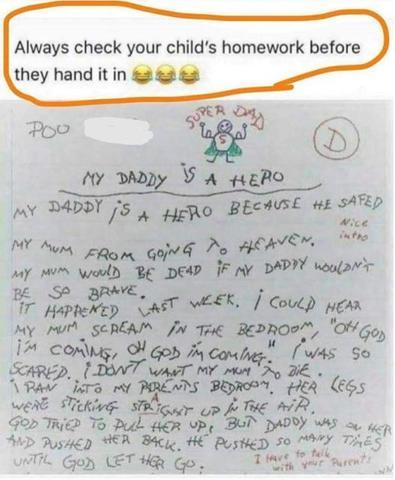 Always check your child's homework before
they hand it in 😂😂😂
SUPER DAD
POO
D
S
MY DADDY iS A HERO
MY DADDY iS A HERO BECAUSE HE SAFED
Nice
intro
MY MUM FROM GOiNG TO HEAVEN.
MY MUM WOULD BE DEAD iF MY DADDY WOULDN'T
BE SO BRAVE.
iT HAPPENED LAST WEEK. i COULD HEAR
MY MUM SCREAM iN THE BEDROOM, "OH GOD
i'M COMiNG, OH GOD iM COMiNG." i WAS SO
SCARED. i DON'T WANT MY MUM TO DiE.
i RAN iNTO MY PARENTS BEDROOM. HER LEGS
WERE STiCKiNG STRAiGHT UP iN THE AiR.
GOD TRiED TO PULL HER UP, BUT DADDY WAS ON HER
AND PUSHED HER BACK. HE PUSHED SO MANY TiMES
UNTiL GOD LET HER GO.
I have to talk
with your Parents